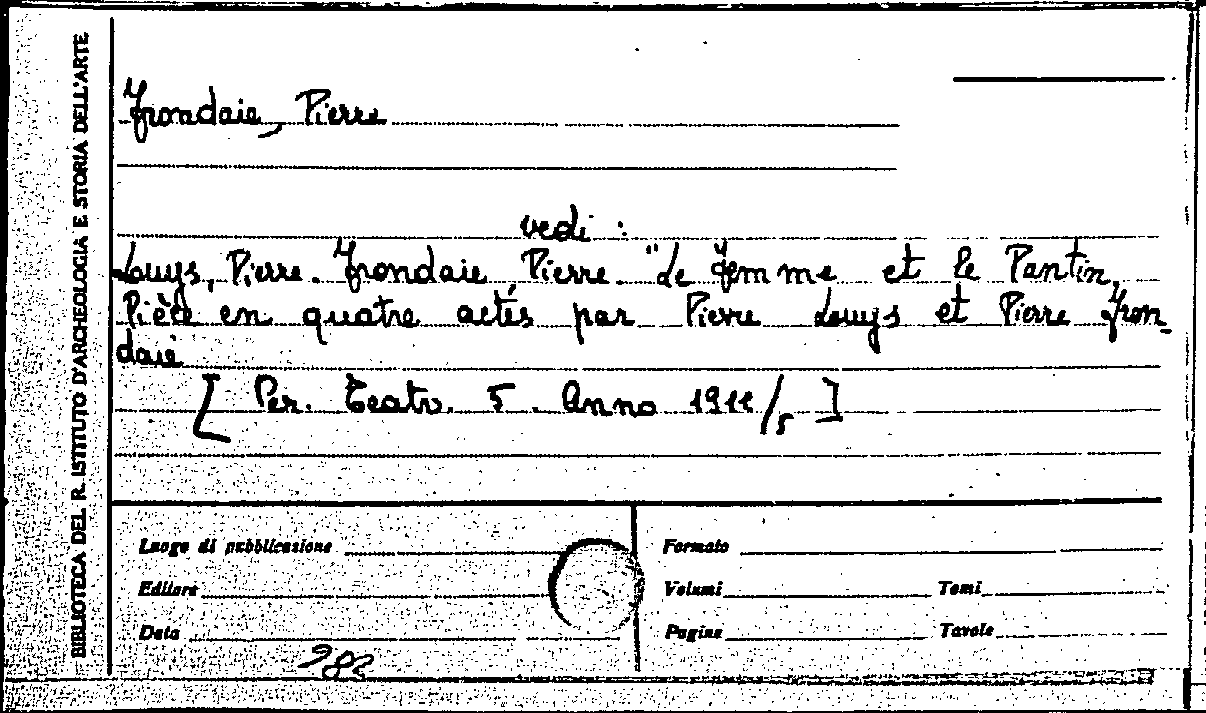 BIBLIOTECA DEL R. ISTITUTO D'ARCHEOLOGIA E STORIA DELL'ARTE
Frondaie, Pierre
vedi :
Louys, Pierre. Frondaie, Pierre. "Le Femme et le Pantin,
Pièce en quatre actes par Pierre Louys et Pierre Fron_
daie
[ Per. Teatr. 5. Anno 1911/5 ]
Luogo di pubblicazione
Formato
Editore
Volumi
Tomi
Data
Pagine
Tavole
982